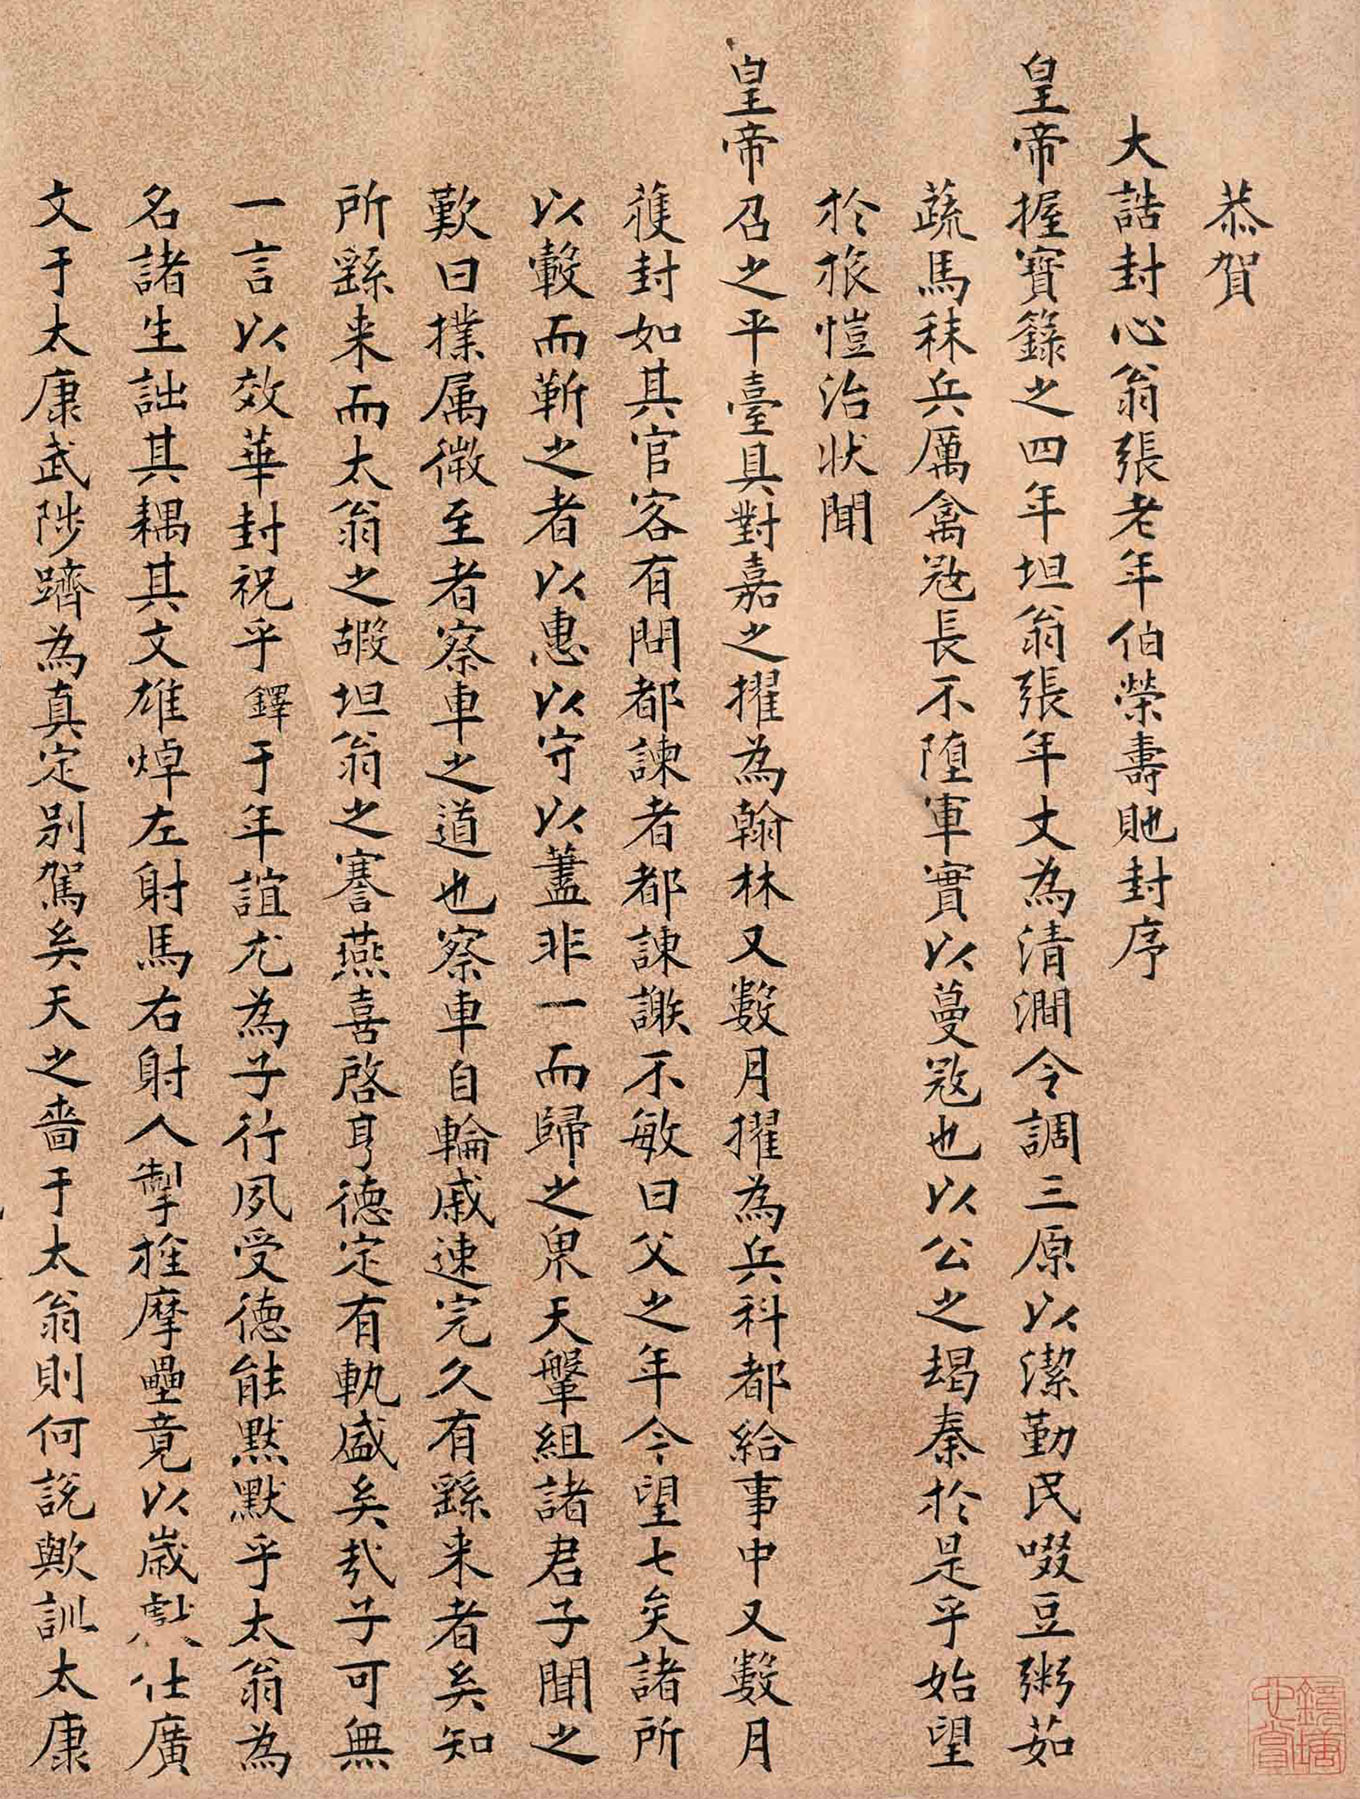 恭賀
大誥封心翁張老年伯榮壽貤封序
皇帝握寶籙之四年坦翁張年丈為清澗令調三原以潔勤民啜豆粥茹
蔬馬秣兵厲禽寇長不墮軍實以蔓寇也以公之朅秦於是乎始望
於旅愷治狀聞
皇帝召之平臺具對嘉之擢為翰林又數月擢為兵科都給事中又數月
獲封如其官客有問都諫者都諫謝不敏曰父之年今望七矣諸所
以轂而靳之者以惠以守以藎非一而歸之眾天鞶組諸君子聞之
歎曰撲属微至者察車之道也察車自輪戚速完久有繇来者矣知
所繇来而太翁之嘏坦翁之謇燕喜啓亨德定有執盛矣哉子可無
一言以效華封祝乎鐸于年誼尤為子行夙受德能默默乎太翁為
名諸生詘其耦其文雄焯左射馬右射人掣拴摩壘竟以歲獻仕廣
文于太康武陟躋為真定别駕矣天之嗇于太翁則何說歟訓太康